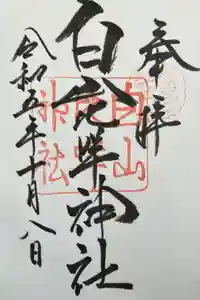 奉拝
白 神社
令和五年十月八日
白山
神社